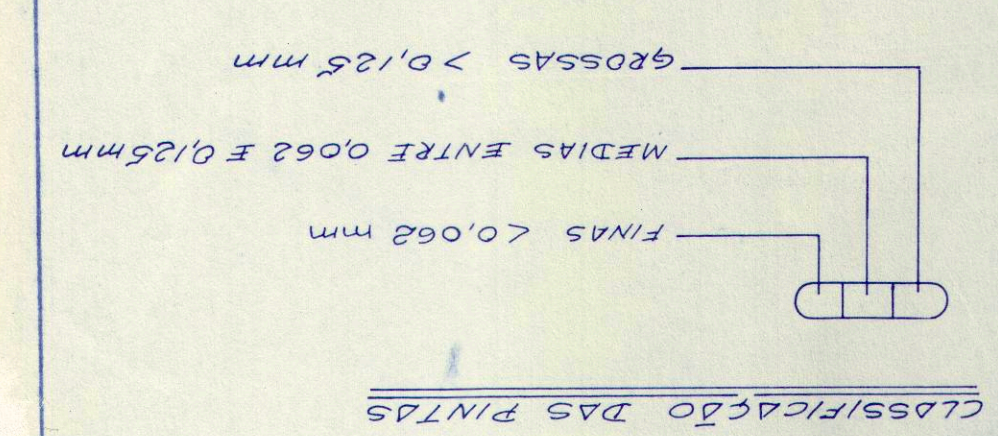 CLASSIFICAÇÃO DAS PINTAS
FINAS <0,062 mm
MEDIAS ENTRE 0,062 E 0,125mm
GROSSAS > 0,125 mm